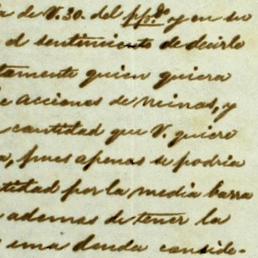 a de V. 30. del pp.do y en su
el sentimiento de decirle
tamente quien quiera
e acciones de minas, y
cantidad que V. quiere
a, pues apenas se podria
tidad por la media barra
ademas de tener la
e una deuda conside-